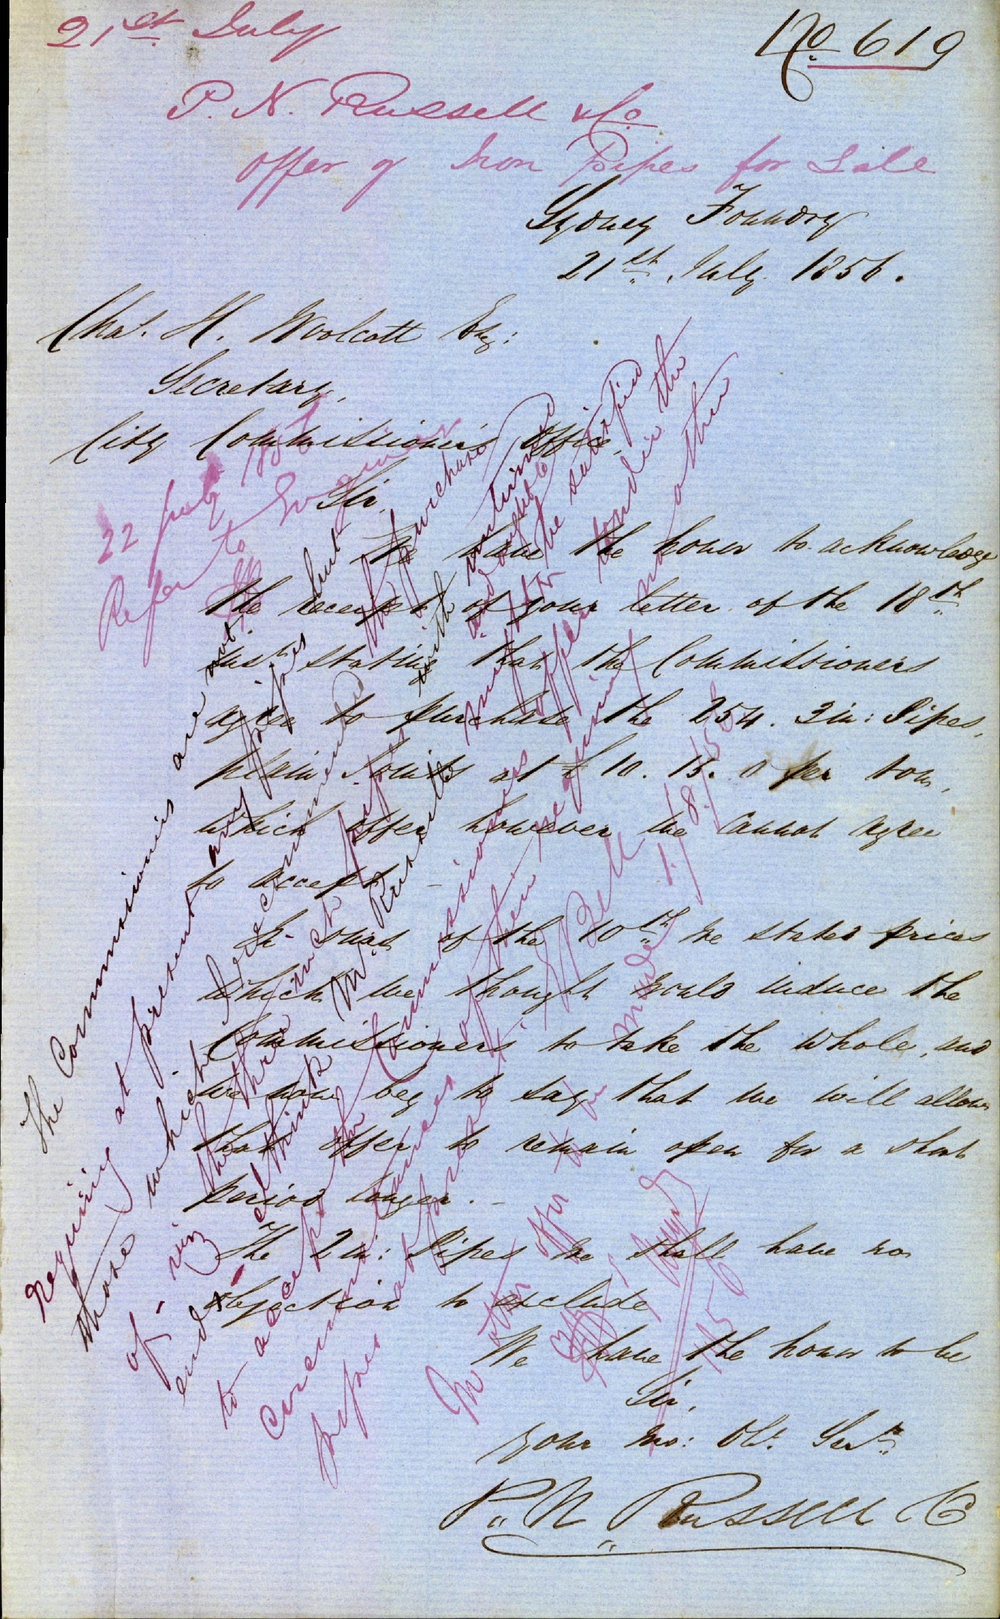 21st July
No 619
P. N. Russell & Co
Offer of Iron Pipes for Sale
Sydney Foundry
21st July 1856.
Chas. H. Woolcott Esq:
Secretary,
City Commissioners Office,
Sir,
We have the honor to acknowledge
the receipt of your letter of the 18th
inst. stating that the Commissioners
agree to purchase the 254. 3 in: Pipes,
plain Joints at £10. 15. 0 per ton,
which offer however we cannot agree
to accept –
In ours of the 10th we stated prices
which we thought would induce the
Commissioners to take the whole, and
we now beg to say that we will allow
that offer to remain open for a short
period longer. –
The 2 in: Pipes we shall have no
objection to exclude
We have the honor to be
Sir,
Your Mo: Obt. Servts.
P. N. Russell & Co
22 July 1856
Refer to Engineer
The Commissioners are not
requiring at present any pipes but
those which I recommend the purchase
of, viz the three inch pipes
and I think Mr. Russell
to accept the Commissioners offer
circumstances of their requiring no other
pipes at present
Bell 1/8/56
No other offer to be made
1856